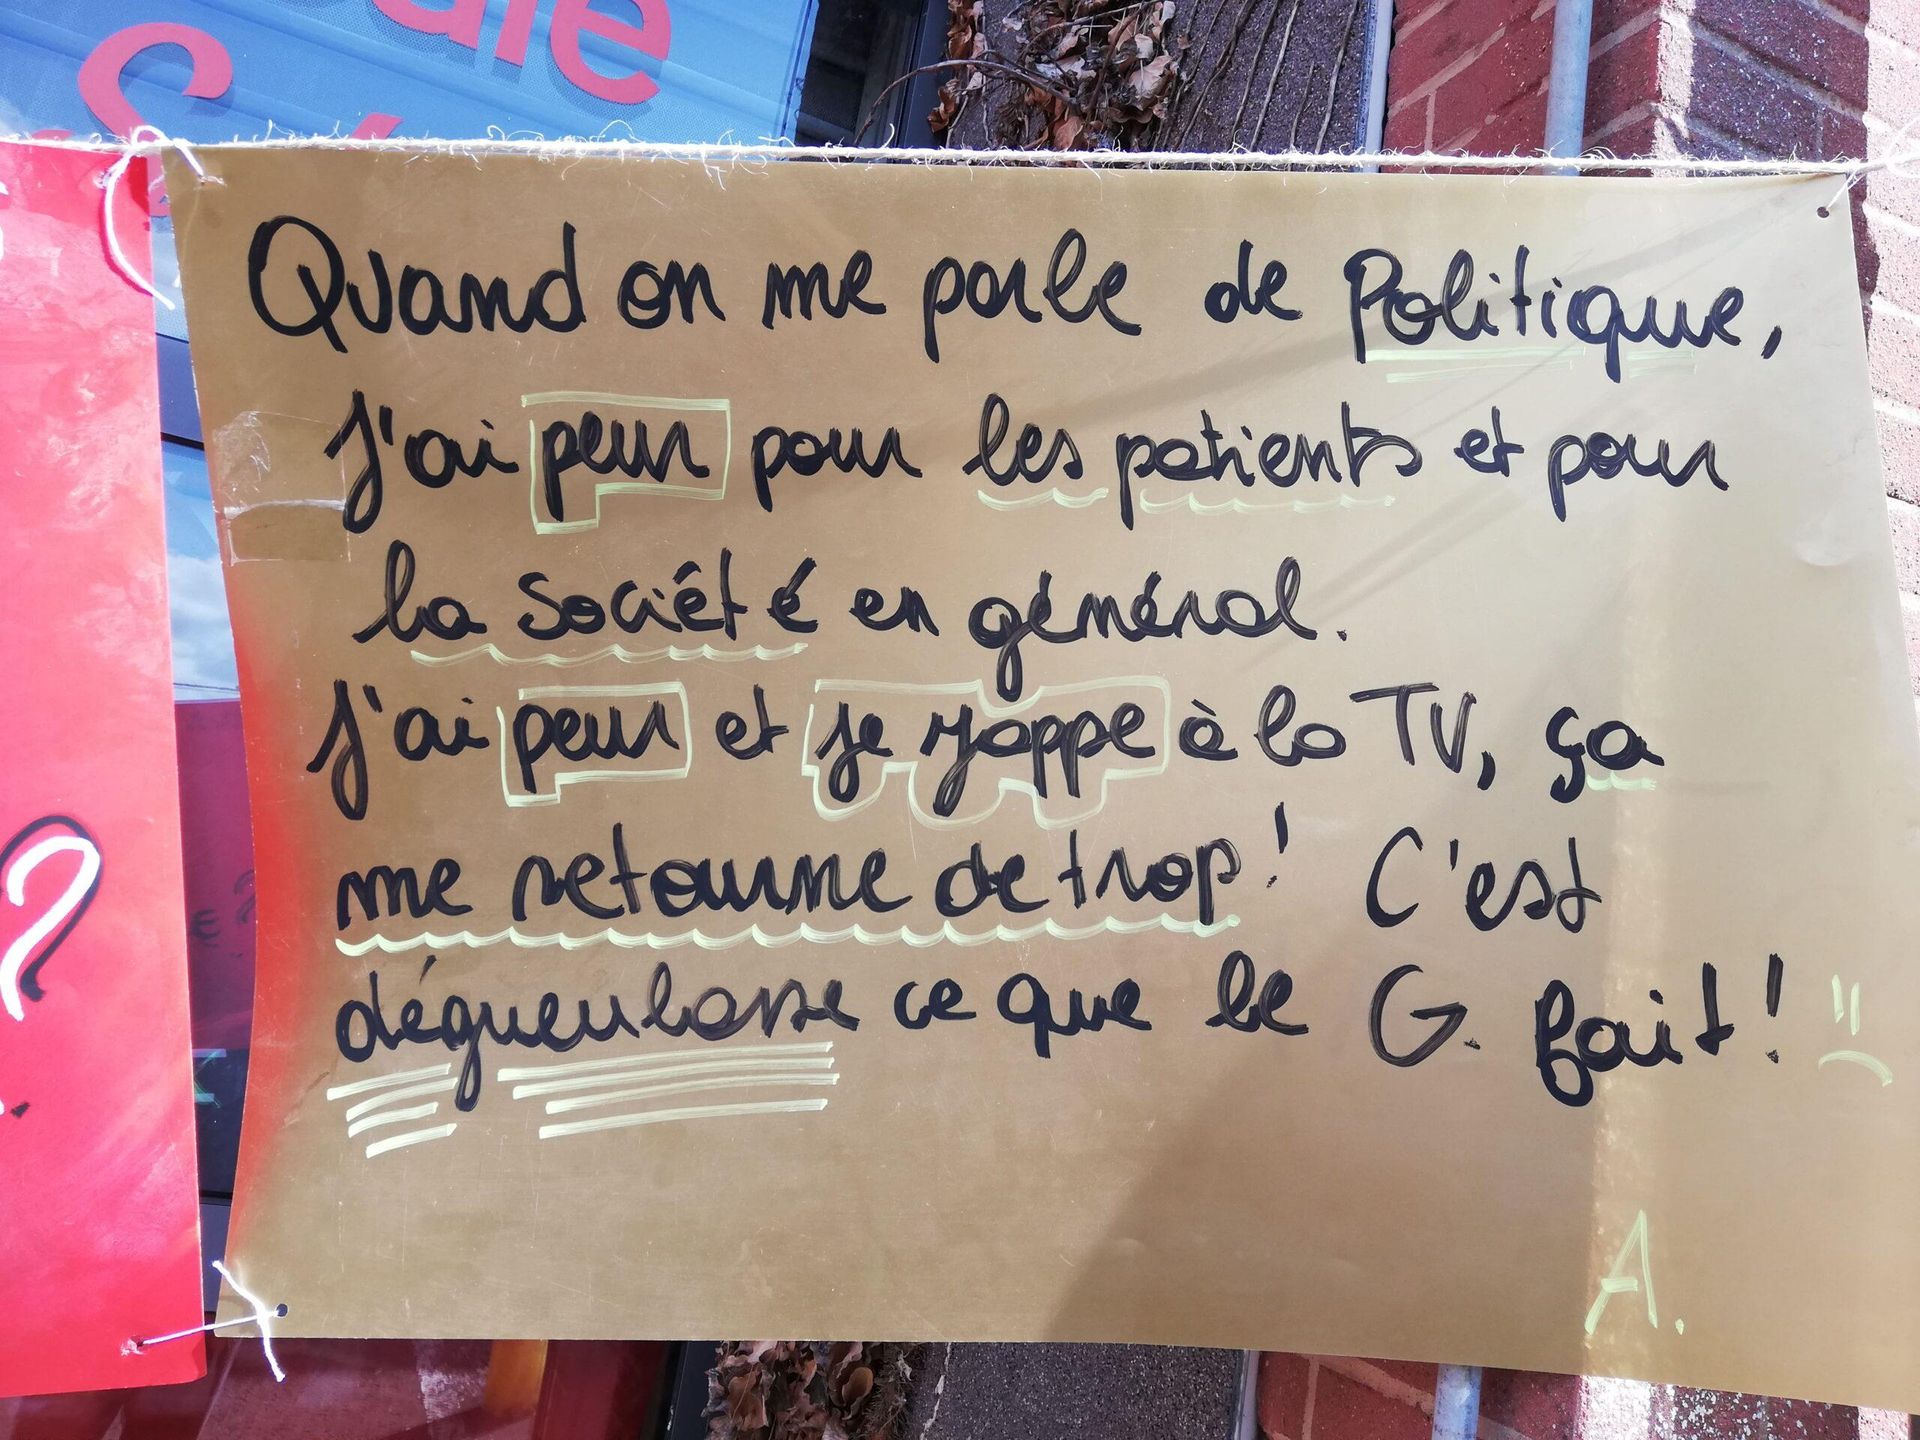 Quand on me parle de Politique,
J'ai peur pour les patients et pour
la société en général.
J'ai peur et je zappe à la TV, ça
me retourne de trop ! C'est
dégueulasse ce que le G. fait !
A.
?